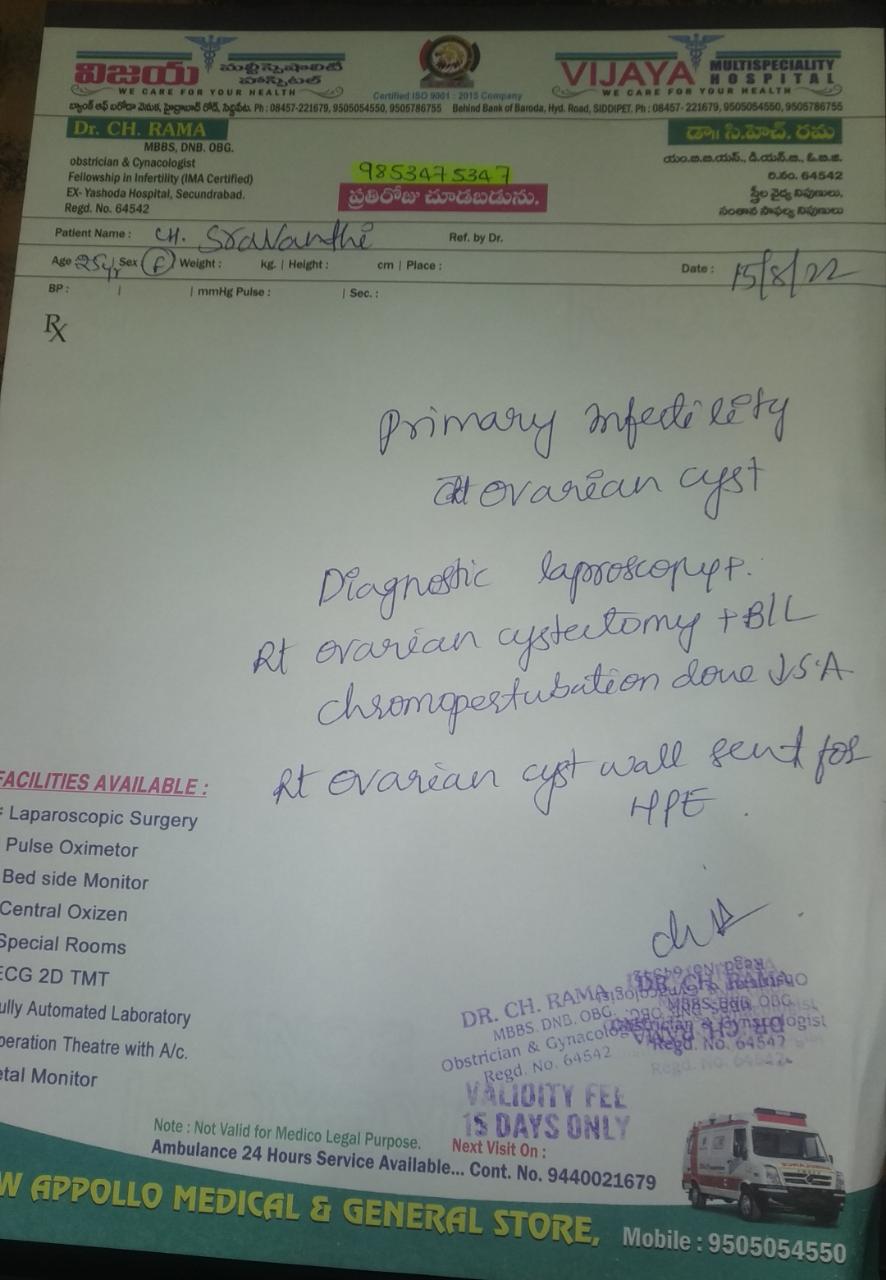 విజయ మల్టీస్పెషాలిటీ హాస్పిటల్
WE CARE FOR YOUR HEALTH
Certified ISO 9001 : 2015 Company
VIJAYA MULTISPECIALITY HOSPITAL
WE CARE FOR YOUR HEALTH
బ్యాంక్ ఆఫ్ బరోడా వెనుక, హైద్రాబాద్ రోడ్, సిద్దిపేట. Ph : 08457-221679, 9505054550, 9505786755 Behind Bank of Baroda, Hyd. Road, SIDDIPET, Ph : 08457- 221679, 9505054550, 9505786755
Dr. CH. RAMA
MBBS, DNB. OBG.
obstrician & Gynacologist
Fellowship in Infertility (IMA Certified)
EX- Yashoda Hospital, Secundrabad.
Regd. No. 64542
9853475347
ప్రతిరోజు చూడబడును.
డా॥ సి.హెచ్. రమ
యం.బి.బి.యస్., డి.యన్.బి., ఓ.బి.జి.
రి.నం. 64542
స్త్రీల వైద్య నిపుణులు,
సంతాన సాఫల్య నిపుణులు
Patient Name : CH. Sravanthi Ref. by Dr.
Age 25yr Sex F Weight : kg. | Height : cm | Place : Date : 15/8/22
BP : | | mmHg Pulse : | Sec. :
Rx
Primary infertility
Rt ovarian cyst
Diagnostic laproscopy+.
Rt ovarian cystectomy + B/L
chromopertubation done ↓S.A
Rt ovarian cyst wall sent for
HPE.
FACILITIES AVAILABLE :
Laparoscopic Surgery
Pulse Oximetor
Bed side Monitor
Central Oxizen
Special Rooms
ECG 2D TMT
ully Automated Laboratory
peration Theatre with A/c.
etal Monitor
DR. CH. RAMA
MBBS, DNB. OBG.
Obstrician & Gynacologist
Regd. No. 64542
DR. CH. RAMA
VALIDITY FEE
15 DAYS ONLY
Note : Not Valid for Medico Legal Purpose.
Next Visit On :
Ambulance 24 Hours Service Available... Cont. No. 9440021679
W APPOLLO MEDICAL & GENERAL STORE, Mobile : 9505054550